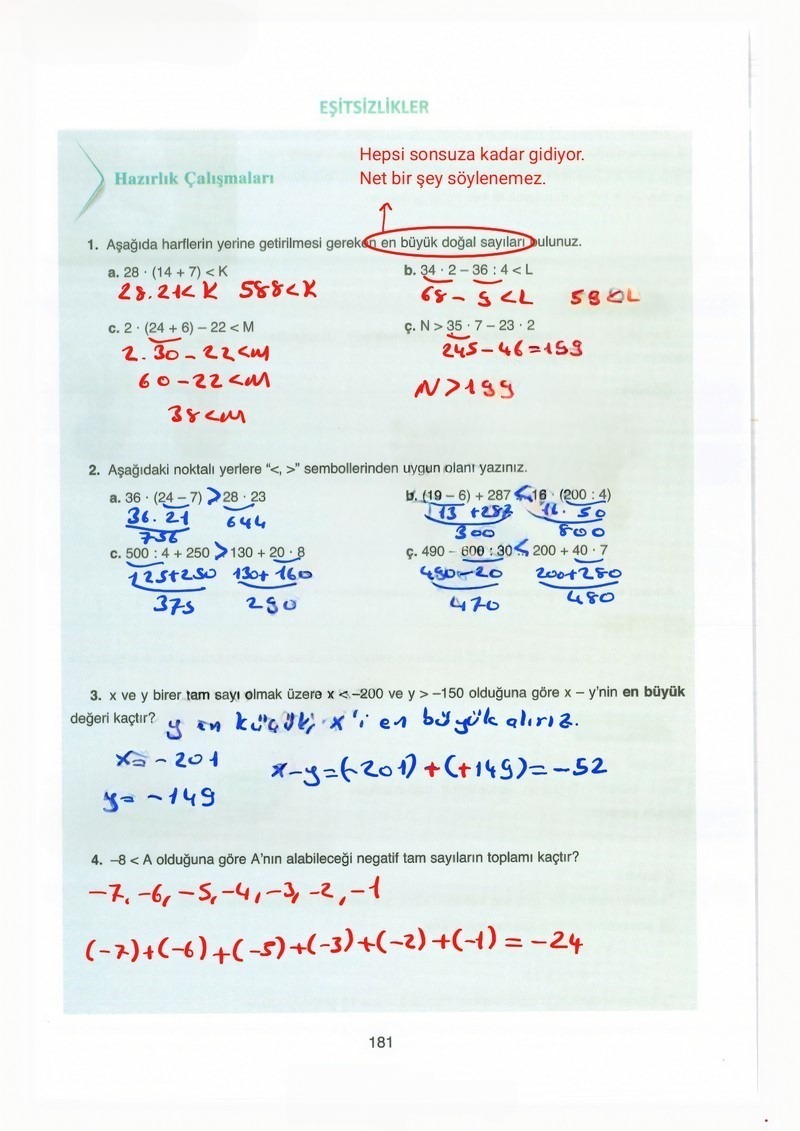 EŞİTSİZLİKLER
Hepsi sonsuza kadar gidiyor.
Net bir şey söylenemez.
Hazırlık Çalışmaları
1. Aşağıda harflerin yerine getirilmesi gereken en büyük doğal sayıları bulunuz.
a. 28 · (14 + 7) < K
b. 34 · 2 – 36 : 4 < L
28.21< K 588<K
68 - 9 <L 59<L
c. 2 · (24 + 6) – 22 < M
ç. N > 35 · 7 – 23 · 2
2. 30 - 22<M
245-46=199
60-22<M
N>199
38<M
2. Aşağıdaki noktalı yerlere “<, >” sembollerinden uygun olanı yazınız.
a. 36 · (24 – 7) > 28 · 23
b. (19 – 6) + 287 < 16 · (200 : 4)
36. 21 644
13 +287 16. 50
756
300 800
c. 500 : 4 + 250 > 130 + 20 · 8
ç. 490 – 600 : 30 < 200 + 40 · 7
125+250 130+ 160
490-20 200+280
375 290
470 480
3. x ve y birer tam sayı olmak üzere x < –200 ve y > –150 olduğuna göre x – y’nin en büyük
değeri kaçtır? y en küçük, x'i en büyük alırız.
x= -201 x-y=(-201)+(+149)=-52
y= -149
4. –8 < A olduğuna göre A’nın alabileceği negatif tam sayıların toplamı kaçtır?
-7, -6, -5, -4, -3, -2, -1
(-7)+(-6)+(-5)+(-3)+(-2)+(-1)= -24
181